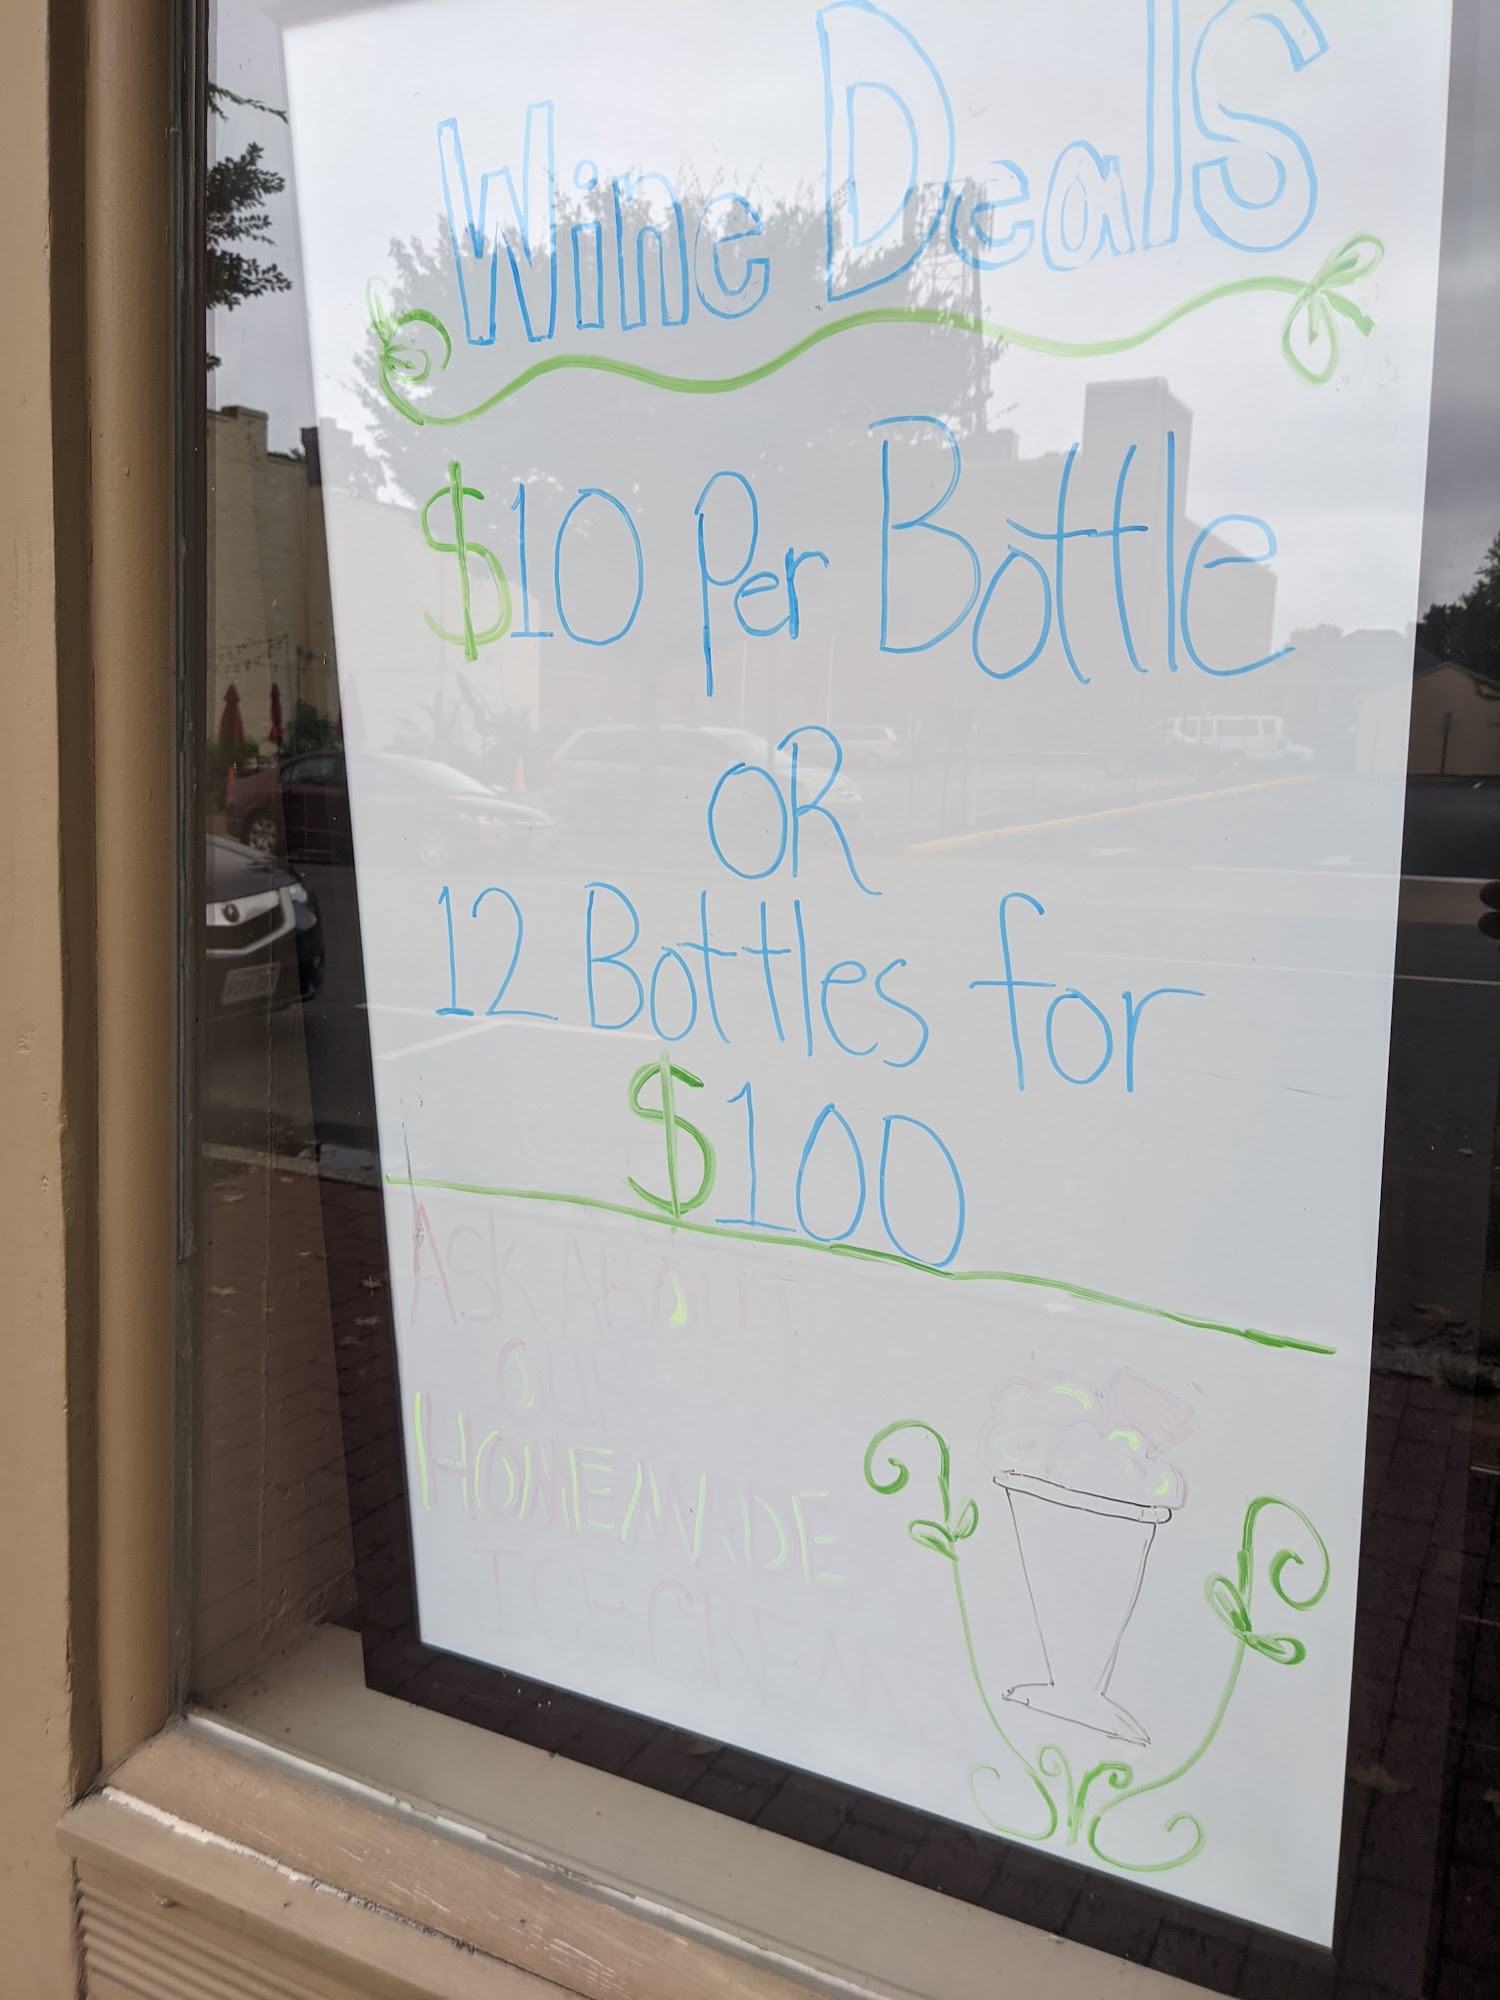 Wine Deals
$10 Per Bottle
OR
12 Bottles for
$100
ASK ABOUT
OUR
HOMEMADE
ICE CREAM